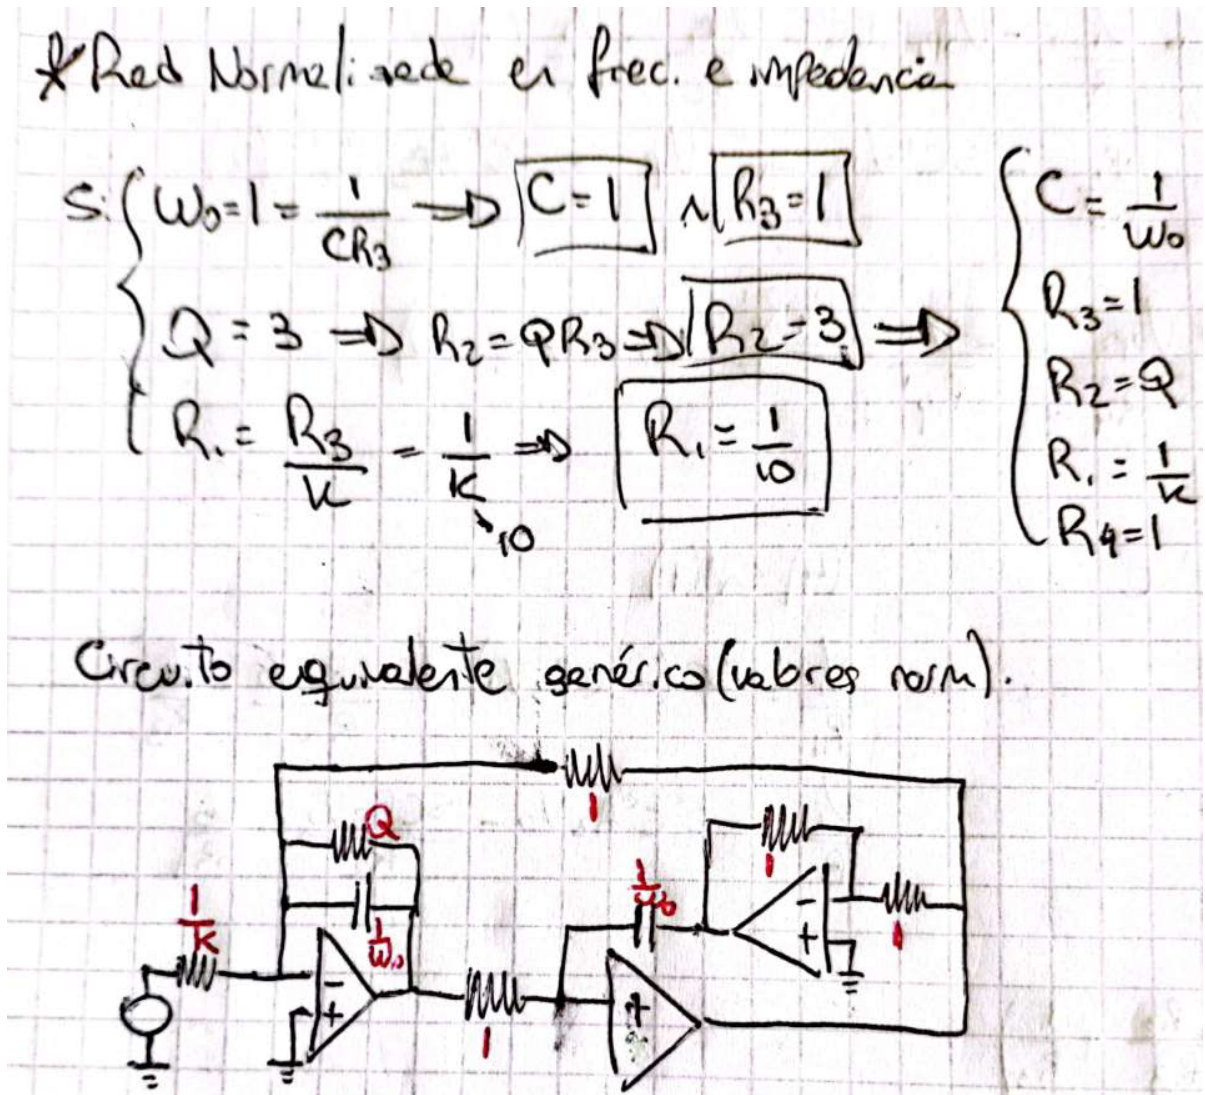 * Red Normalizada en frec. e impedancia
Si { W₀=1= 1/(CR₃) ⇒ C=1 ∧ R₃=1
Q = 3 ⇒ R₂=QR₃ ⇒ R₂=3 ⇒
R₁ = R₃/K = 1/K ⇒ R₁ = 1/10
10
{ C = 1/W₀
R₃=1
R₂=Q
R₁ = 1/K
R₄=1
Circuito equivalente genérico (valores norm).
1
Q
1
1/W₀
1/K
1/W₀
1
1
-
+
-
+
+